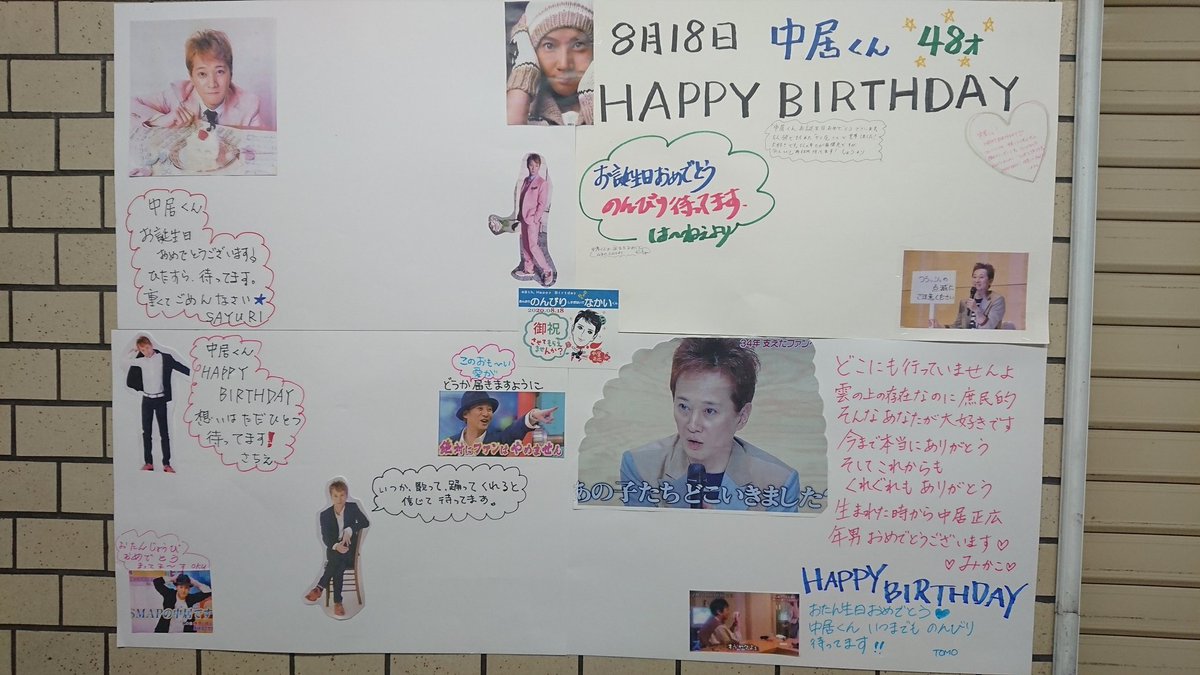 8月18日 中居くん 48才
HAPPY BIRTHDAY
お誕生日おめでとう
のんびり待ってます。
は〜ねえより
中居くん
お誕生日
おめでとうございます。
ひたすら、待ってます。
重くてごめんなさい★
SAYURI
フラッシュの
点滅に
ご注意ください
Happy Birthday
のんびり
なかい
2020.08.18
御祝
させてもらえ
ませんか?
中居くん
HAPPY
BIRTHDAY
想いはただひとつ
待ってます!
さちえ
このおも〜い
愛が
どうか届きますように
絶対にファンはやめません
いつか、歌って、踊ってくれると
信じて待ってます。
34年 支えたファン
あの子たちどこいきました
どこにも行っていませんよ
雲の上の存在なのに庶民的
そんなあなたが大好きです
今まで本当にありがとう
そしてこれからも
くれぐれもありがとう
生まれた時から中居正広
年男おめでとうございます♡
♡みかこ♡
おたんじょうび
おめでとう
まってま〜す OKU
SMAPの中居です
HAPPY BIRTHDAY
おたん生日おめでとう♥
中居くん いつまでも のんびり
待ってます!!
TOMO